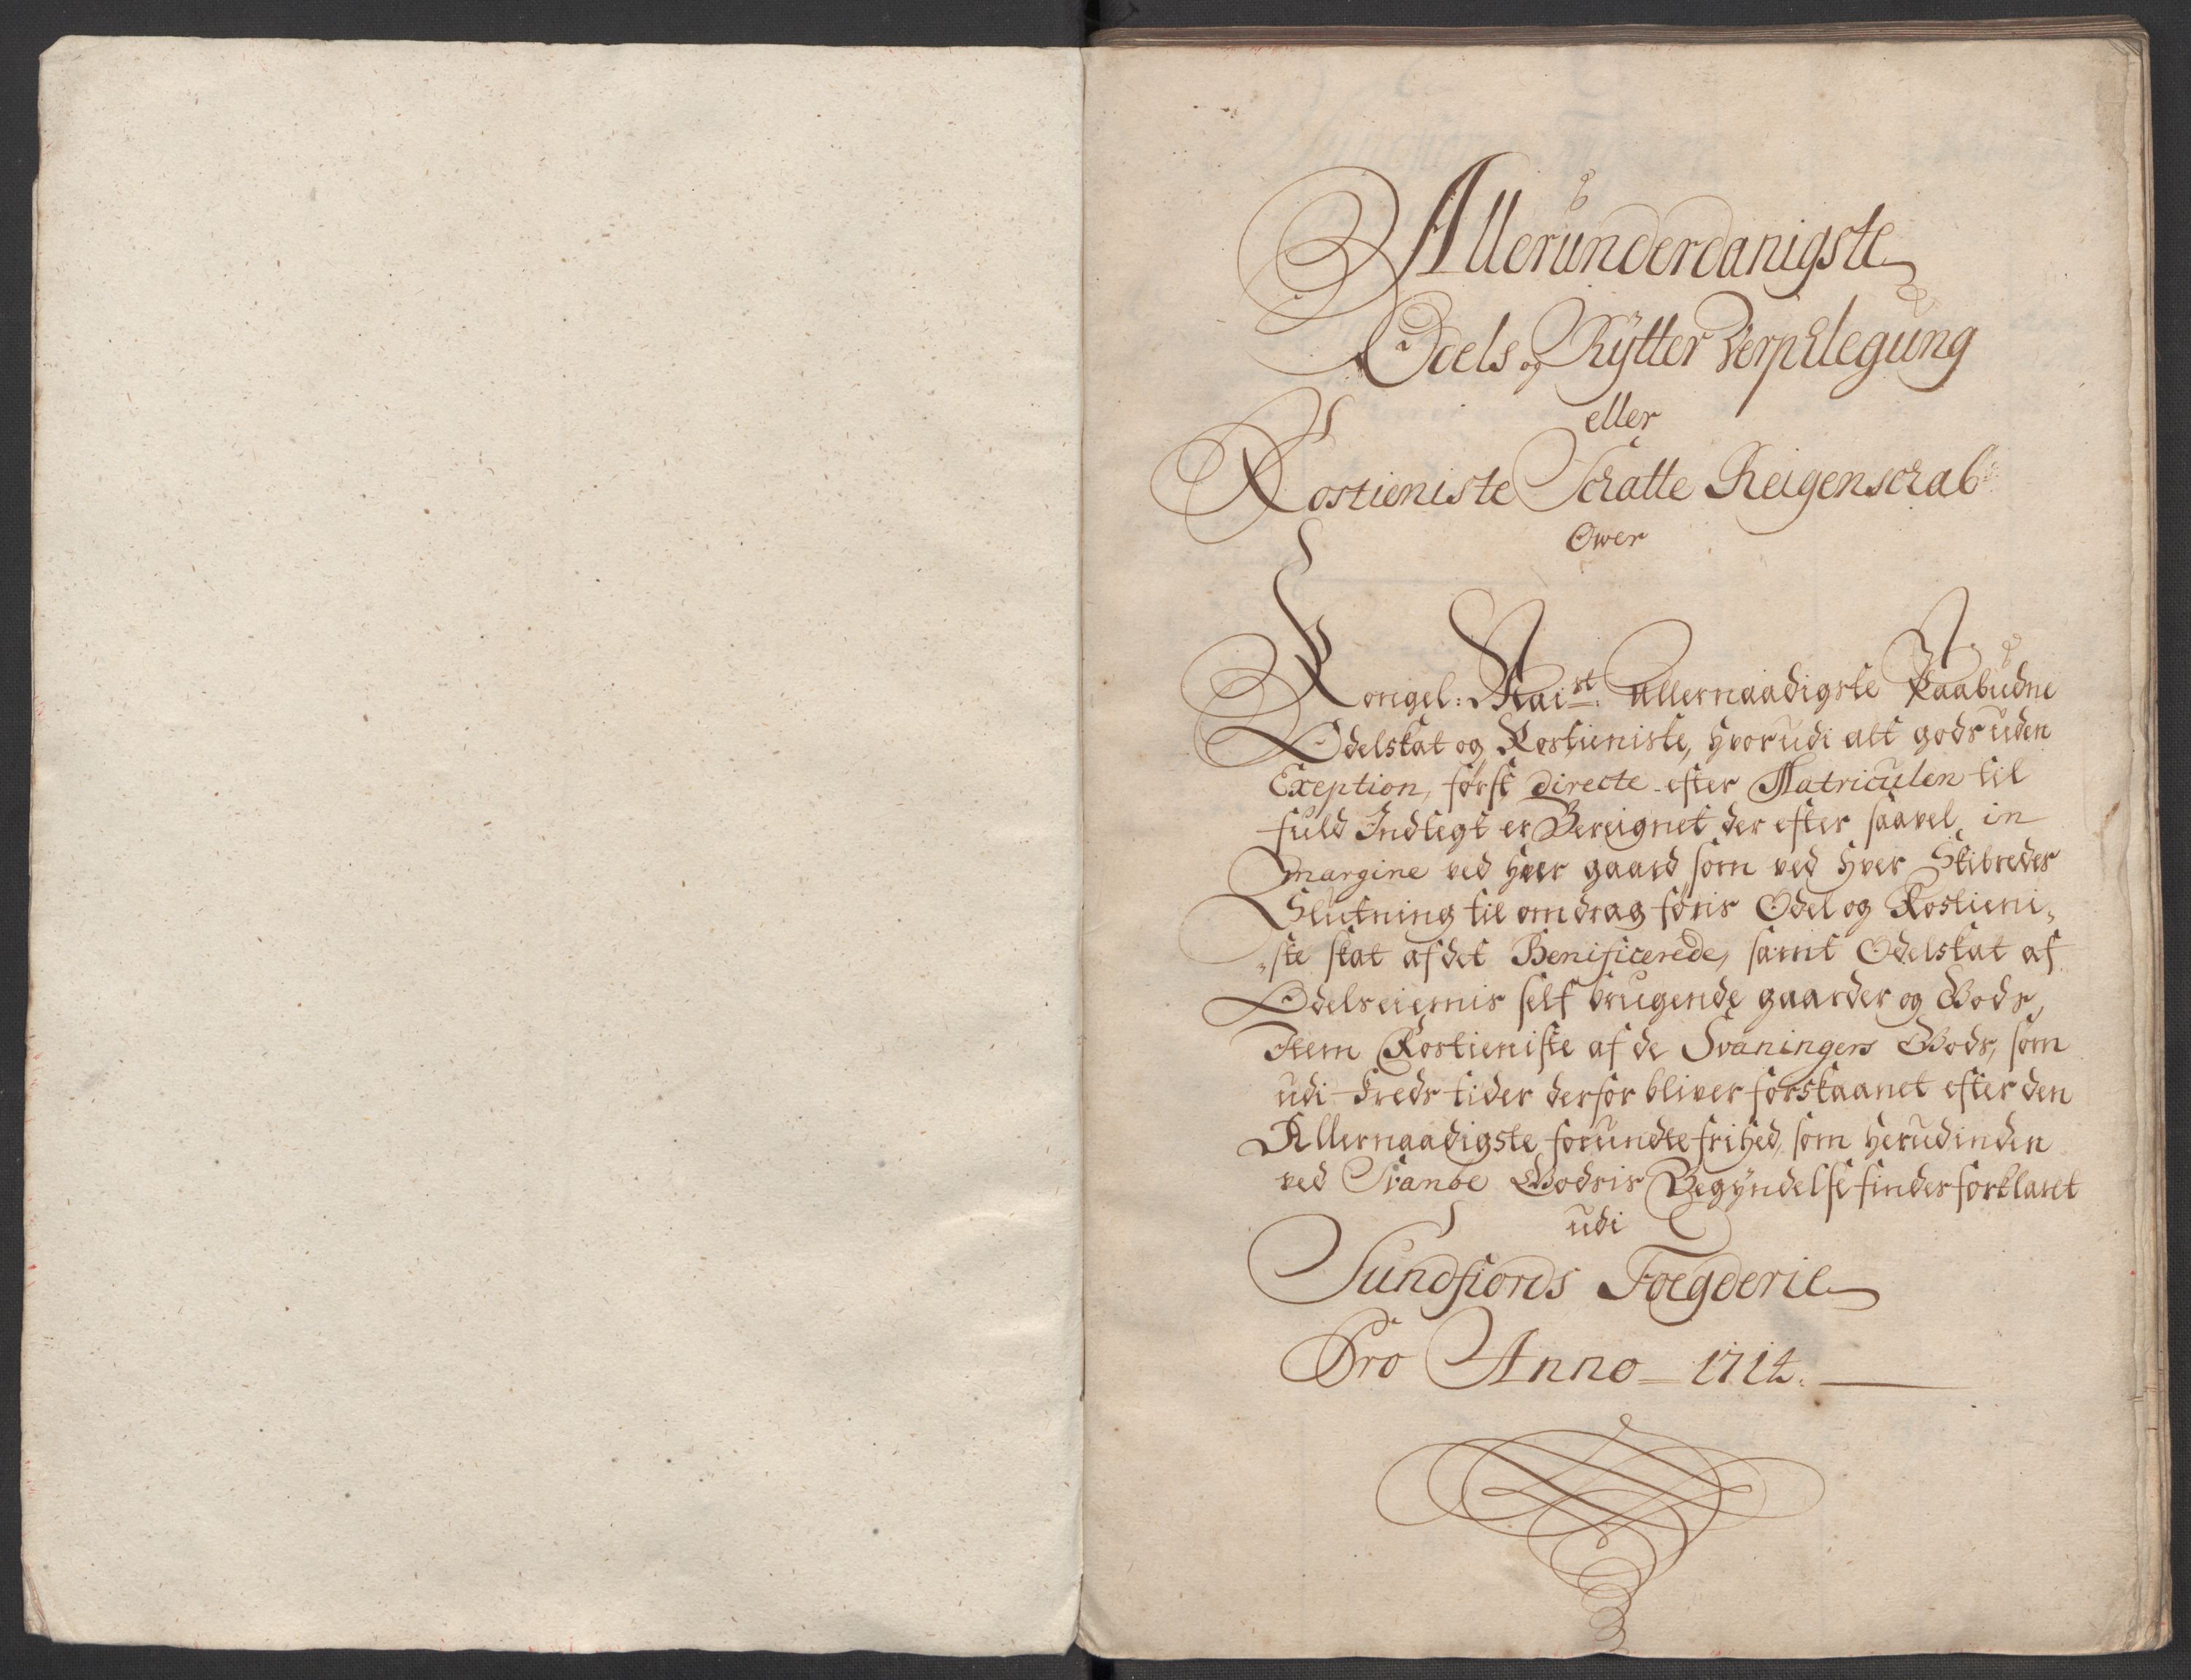 Allerunderdanigste
Odels og Rytter Verpflegung
eller
Rostieniste Schatte Reigenschab
Ower
Kongel: Maist: Allernaadigste Paabudne
Odelskat og Rostieniste, hvorudi alt gods uden
Exeption, først directe efter Matriculen til
fuld Indtegt er Bereignet der efter saavel in
margine ved hver gaard som ved hver Skibredes
Slutning til omdrag føris Odel og Rostieni„
„ste skat af det Benificerede, samt Odelskat af
Odelseiernis self brugende gaarder og Gods,
Item Rostieniste af de Svaningers Gods, som
udi freds tider derfor bliver forskaanet efter den
Allernaadigste forundte frihed, som herudinden
ved Svanøe Godsis Begyndelse findes forklaret
udi
Sundfiords Foegderie
Pro Anno 1714.